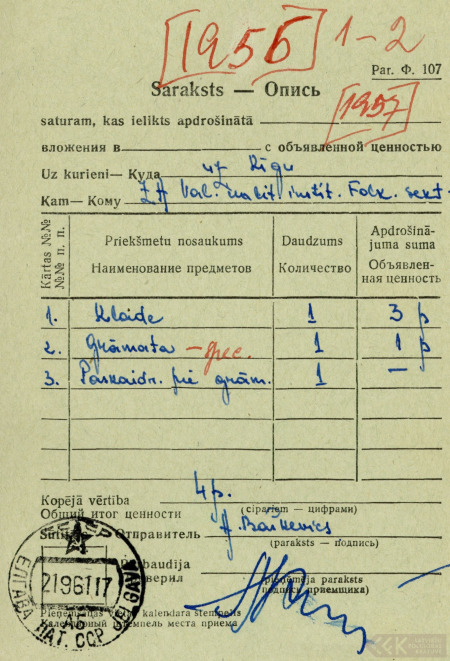 [1956] 1-2
Paг. Ф. 107
Saraksts — Опись
[1957]
saturam, kas ielikts apdrošinātā
вложения в с объявленной ценностью
Uz kurieni— Куда uz Rīgu
Kam— Кому ZA Val. un lit. instit. Folk. sekt.
Kārtas №№
№№ п. п.
Priekšmetu nosaukums
Наименование предметов
Daudzums
Количество
Apdrošinā-
juma suma
Объявлен-
ная ценность
1. Klade 1 3 p
2. Grāmata — 1 1 p
3. Paskaidr. pie grām. 1 —
Kopējā vērtība 4 p.
Общий итог ценности (cipariem — цифрами)
Отправитель A. Bāķevics
(paraksts — подпись)
baudīja
верил
(pieņēmēja paraksts
подпись приемщика)
Pieņemšanas vietas kalendāra štempelis
Календарный штемпель места приема
21961 17
ЛАТ. ССР